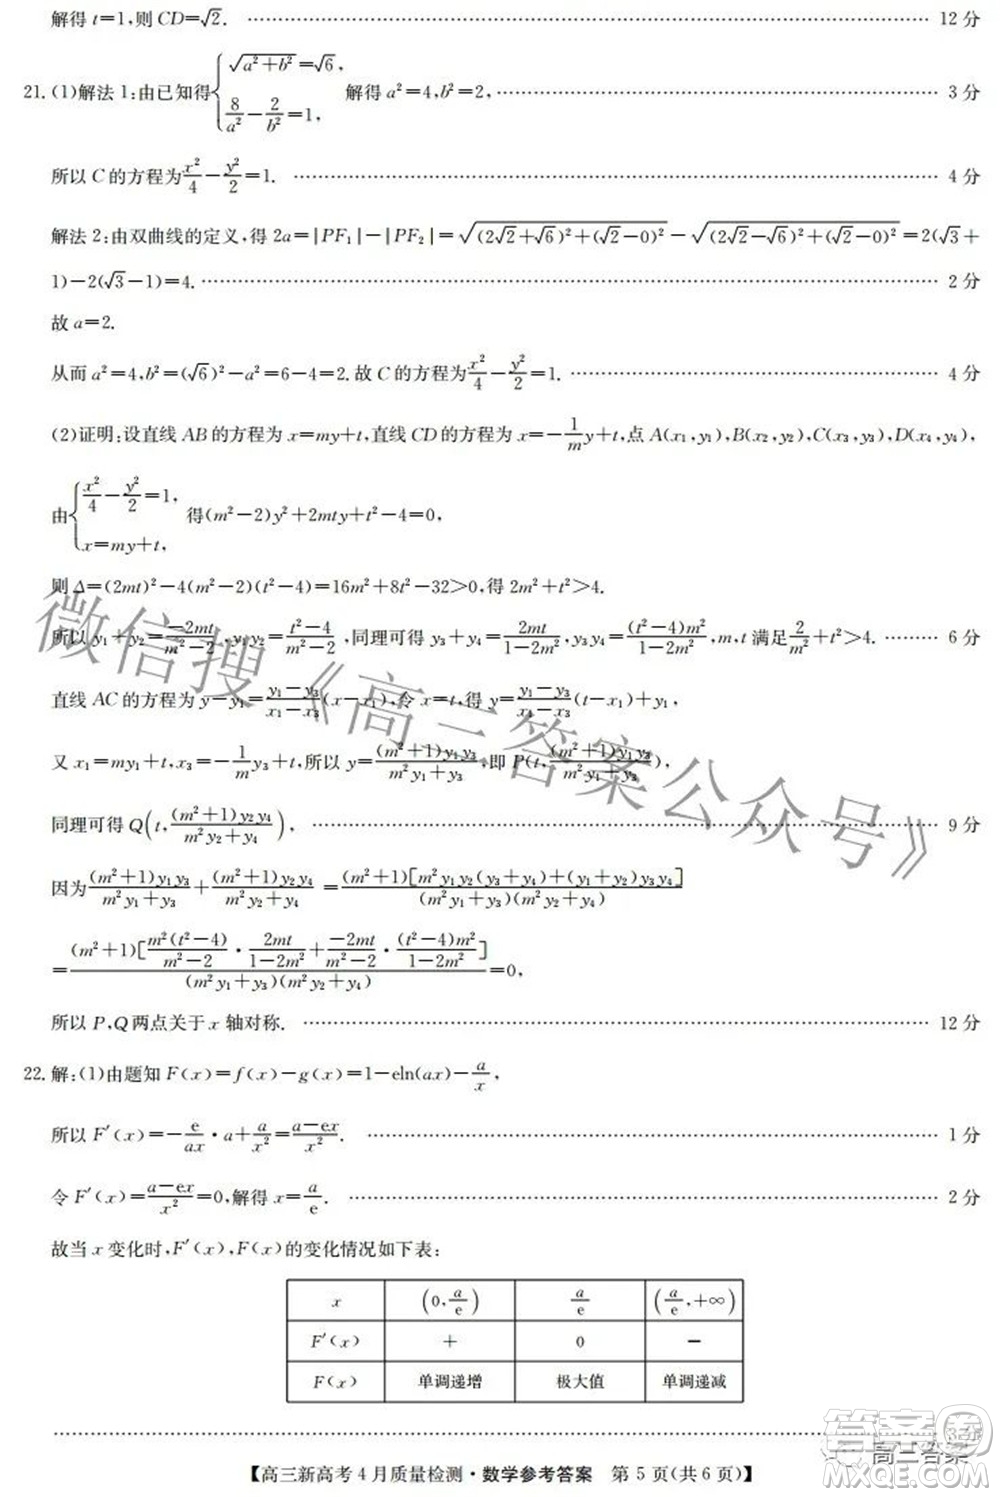 解得 t=1,则 CD=√2. …… 12 分
21. (1)解法 1:由已知得{√(a²+b²)=√6, 8/a²-2/b²=1, 解得 a²=4,b²=2, …… 3 分
所以 C 的方程为 x²/4-y²/2=1. …… 4 分
解法 2:由双曲线的定义,得 2a=|PF₁|-|PF₂|=√((2√2+√6)²+(√2-0)²)-√((2√2-√6)²+(√2-0)²)=2(√3+
1)-2(√3-1)=4. …… 2 分
故 a=2.
从而 a²=4,b²=(√6)²-a²=6-4=2.故 C 的方程为 x²/4-y²/2=1. …… 4 分
(2)证明:设直线 AB 的方程为 x=my+t,直线 CD 的方程为 x=-1/m y+t,点 A(x₁,y₁),B(x₂,y₂),C(x₃,y₃),D(x₄,y₄),
由{x²/4-y²/2=1, x=my+t, 得(m²-2)y²+2mty+t²-4=0,
则 Δ=(2mt)²-4(m²-2)(t²-4)=16m²+8t²-32>0,得 2m²+t²>4.
所以 y₁+y₂=-2mt/(m²-2),y₁y₂=(t²-4)/(m²-2),同理可得 y₃+y₄=2mt/(1-2m²),y₃y₄=(t²-4)m²/(1-2m²),m,t 满足 2/m²+t²>4. …… 6 分
直线 AC 的方程为 y-y₁=(y₁-y₃)/(x₁-x₃)(x-x₁),令 x=t,得 y=(y₁-y₃)/(x₁-x₃)(t-x₁)+y₁,
又 x₁=my₁+t,x₃=-1/m y₃+t,所以 y=(m²+1)y₁y₃/(m²y₁+y₃),即 P(t,(m²+1)y₁y₃/(m²y₁+y₃)),
同理可得 Q(t,(m²+1)y₂y₄/(m²y₂+y₄)), …… 9 分
因为 (m²+1)y₁y₃/(m²y₁+y₃)+(m²+1)y₂y₄/(m²y₂+y₄)=(m²+1)[m²y₁y₂(y₃+y₄)+(y₁+y₂)y₃y₄]/((m²y₁+y₃)(m²y₂+y₄))
=(m²+1)[m²(t²-4)/(m²-2)·2mt/(1-2m²)+-2mt/(m²-2)·(t²-4)m²/(1-2m²)]/((m²y₁+y₃)(m²y₂+y₄))=0,
所以 P,Q 两点关于 x 轴对称. …… 12 分
22. 解:(1)由题知 F(x)=f(x)-g(x)=1-eln(ax)-a/x,
所以 F′(x)=-e/ax·a+a/x²=(a-ex)/x². …… 1 分
令 F′(x)=(a-ex)/x²=0,解得 x=a/e. …… 2 分
故当 x 变化时,F′(x),F(x)的变化情况如下表:
x (0,a/e) a/e (a/e,+∞)
F′(x) + 0 -
F(x) 单调递增 极大值 单调递减
【高三新高考 4 月质量检测·数学参考答案 第 5 页(共 6 页)】
微信搜《高三答案公众号》
高三答案